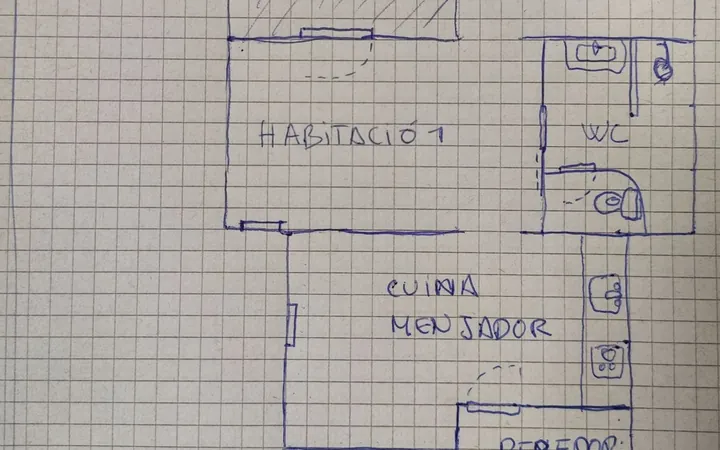 HABITACIÓ 1
WC
CUINA
MENJADOR
REBEDOR